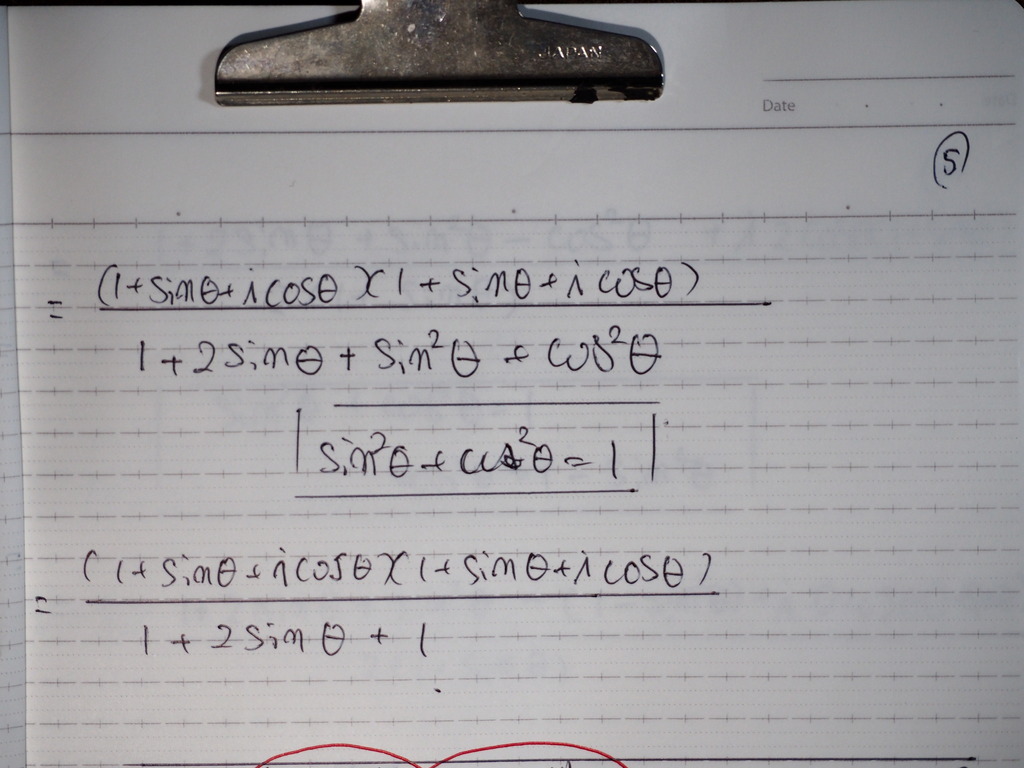 JAPAN
Date
5
= (1+sinθ+icosθ)(1+sinθ+icosθ)
1+2sinθ+sin²θ+cos²θ
|sin²θ+cos²θ=1|
= (1+sinθ+icosθ)(1+sinθ+icosθ)
1+2sinθ+1